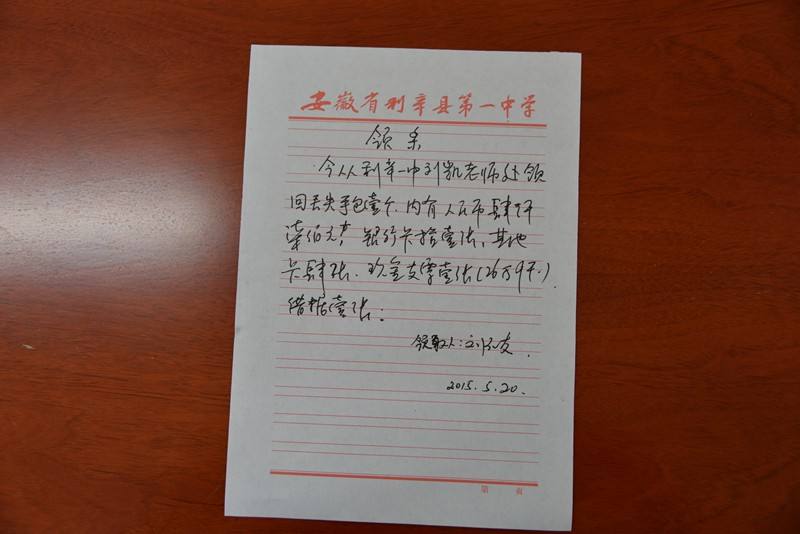 安徽省利辛县第一中学
领条
今从利辛一中刘凯老师处领
回丢失手包壹个.内有人民币肆仟
柒佰元,银行卡拾壹张、其他
卡肆张.现金支票壹张(26万9千.)
借据壹张;
领取人:刘
2015.5.20.
第 页